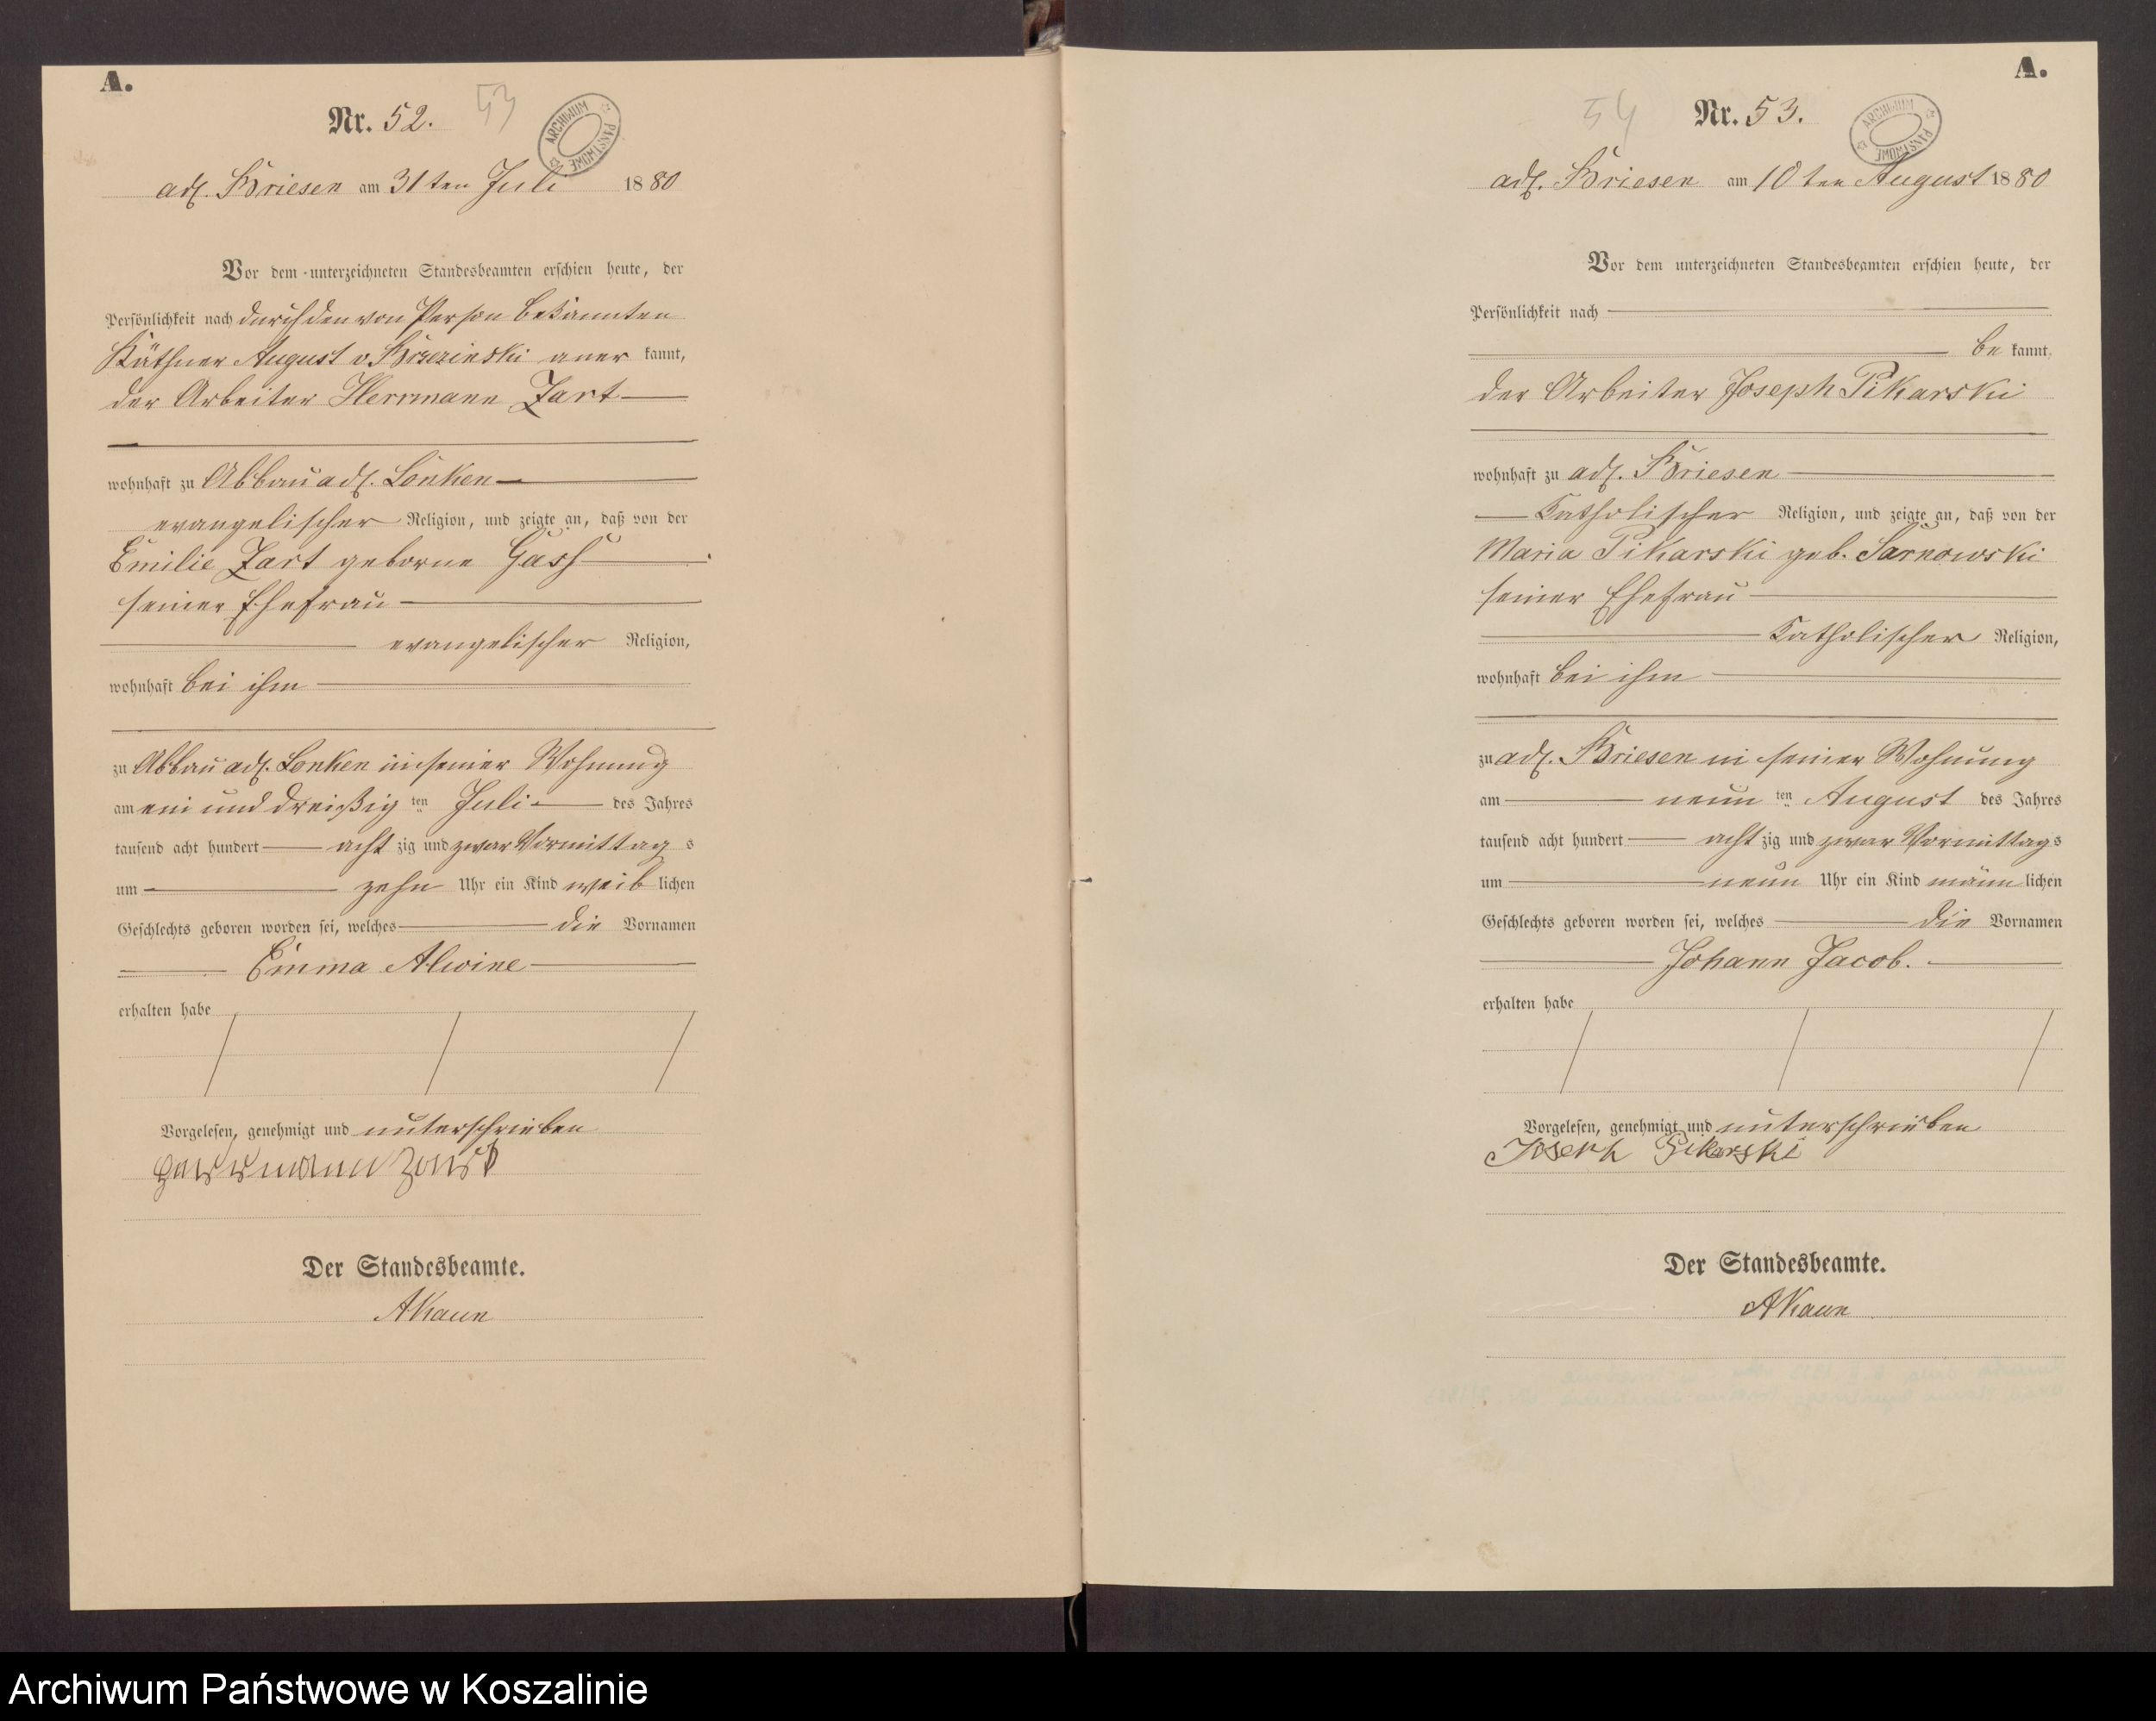 A.
Nr. 52.
53
ARCHIWUM PAŃSTWOWE
adl. Briesen am 31ten Juli 1880
Vor dem unterzeichneten Standesbeamten erschien heute, der
Persönlichkeit nach durch den von Person bekannten
Käthner August v. Brzezinski aner kannt,
der Arbeiter Herrmann Zart
wohnhaft zu Abbau adl. Lonken
evangelischer Religion, und zeigte an, daß von der
Emilie Zart geborne Gash
seiner Ehefrau
evangelischer Religion,
wohnhaft bei ihm
zu Abbau adl. Lonken in seiner Wohnung
am ein und dreißig ten Juli des Jahres
tausend acht hundert acht zig und zwar Vormittag s
um zehn Uhr ein Kind weib lichen
Geschlechts geboren worden sei, welches die Vornamen
Emma Alwine
erhalten habe
Vorgelesen, genehmigt und unterschrieben
Herrmann Zart
Der Standesbeamte.
AKaun
A.
54
Nr. 53.
ARCHIWUM PAŃSTWOWE
adl. Briesen am 10ten August 1880
Vor dem unterzeichneten Standesbeamten erschien heute, der
Persönlichkeit nach
be kannt,
der Arbeiter Joseph Pikarski
wohnhaft zu adl. Briesen
Katholischer Religion, und zeigte an, daß von der
Maria Pikarski geb. Sarnowski
seiner Ehefrau
Katholischer Religion,
wohnhaft bei ihm
zu adl. Briesen in seiner Wohnung
am neun ten August des Jahres
tausend acht hundert acht zig und zwar Vormittag s
um neun Uhr ein Kind männ lichen
Geschlechts geboren worden sei, welches die Vornamen
Johann Jacob.
erhalten habe
Vorgelesen, genehmigt und unterschrieben
Joseph Pikarski
Der Standesbeamte.
AKaun
Archiwum Państwowe w Koszalinie